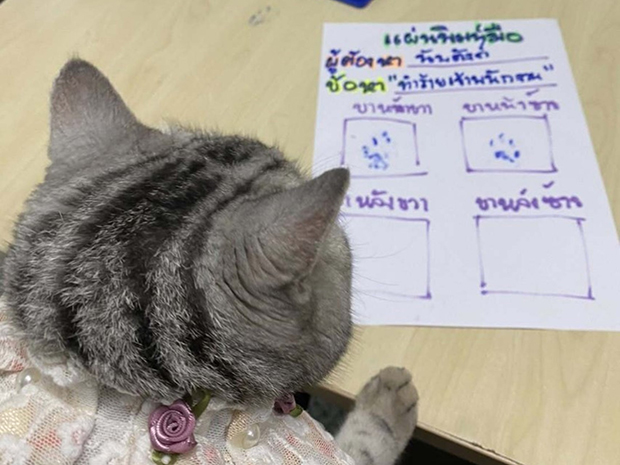 แผ่นพิมพ์มือ
ผู้ต้องหา นุ๊บตังค์
ข้อหา "ทำร้ายเจ้าพนักงาน"
ขาหน้าขวา ขาหน้าซ้าย
ขาหลังขวา ขาหลังซ้าย